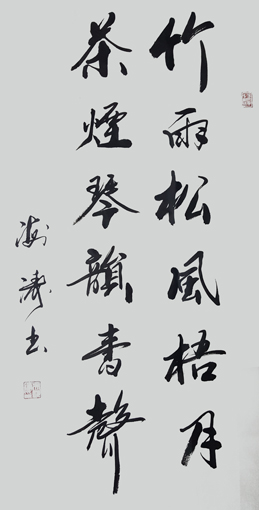 竹雨松風梧月
茶煙琴韻書聲
海濤书